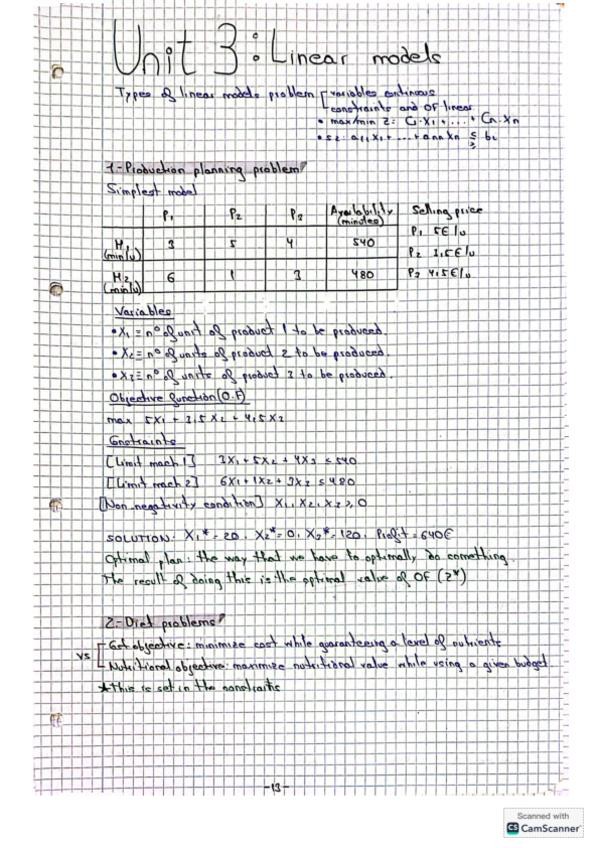 Unit 3: Linear models
Types of linear models problem [variables continuous
constraints and OF linear
• max/min z: C₁·X₁ + ... + Cn·Xn
1-Production planning problem
Simplest model
P₁ P₂ P₃ Availability (minutes) Selling price
M₁ (min/u) 3 5 4 540 P₁ 5€/u
M₂ (min/u) 6 1 3 480 P₂ 3,5€/u
P₃ 4,5€/u
Variables
• X₁ ≡ nº of unit of product 1 to be produced.
• X₂ ≡ nº of units of product 2 to be produced.
• X₃ ≡ nº of units of product 3 to be produced.
Objective function (O.F)
max 5X₁ + 3,5X₂ + 4,5X₃
Constraints
[Limit mach 1] 3X₁ + 5X₂ + 4X₃ ≤ 540
[Limit mach 2] 6X₁ + 1X₂ + 3X₃ ≤ 480
[Non negativity condition] X₁, X₂, X₃ ≥ 0
SOLUTION: X₁* = 20. X₂* = 0. X₃* = 120. Profit = 640€
Optimal plan: the way that we have to optimally do something.
The result of doing this is the optimal value of OF (z*)
2-Diet problems
vs [Cost objective: minimize cost while guaranteeing a level of nutrients
Nutritional objective: maximize nutritional value while using a given budget.
*This is set in the constraits
-13-
Scanned with
CS CamScanner